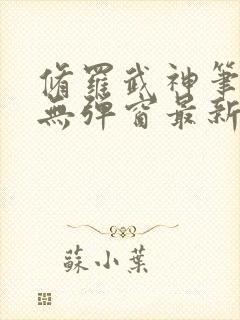 脩羅武神筆
無彈窗最新
蘇小葉